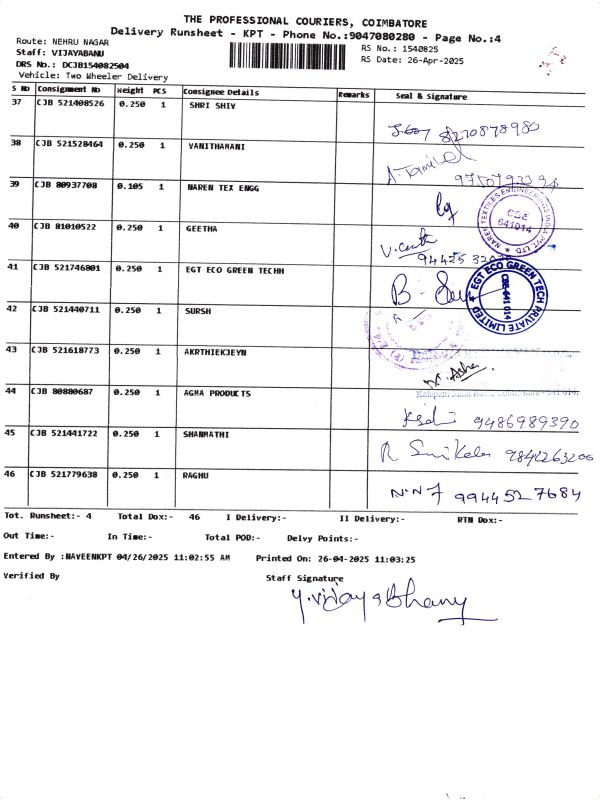 THE PROFESSIONAL COURIERS, COIMBATORE
Delivery Runsheet - KPT - Phone No.:9047080280 - Page No.:4
Route: NEHRU NAGAR
RS No.: 1540825
Staff: VIJAYABANU
RS Date: 26-Apr-2025
DRS No.: DCJB154082504
Vehicle: Two Wheeler Delivery
S No Consignment No Weight PCS Consignee Details Remarks Seal & Signature
37 CJB 521408526 0.250 1 SHRI SHIV
8270878980
38 CJB 521528464 0.250 1 VANITHAMANI
A. Tamil
39 CJB 80937708 0.105 1 NAREN TEX ENGG
NAREN TEXTILES ENGINEERING INDIA PVT. LTD. CBE 641014
40 CJB 81010522 0.250 1 GEETHA
41 CJB 521746801 0.250 1 EGT ECO GREEN TECHH
EGT ECO GREEN TECH PRIVATE LIMITED CBE-641 014
42 CJB 521440711 0.250 1 SURSH
43 CJB 521618773 0.250 1 AKRTHIEKJEYN
44 CJB 80880687 0.250 1 AGMA PRODUCTS
9486989390
45 CJB 521441722 0.250 1 SHANMATHI
9842263206
46 CJB 521779638 0.250 1 RAGHU
9944527684
Tot. Runsheet:- 4 Total Dox:- 46 I Delivery:- II Delivery:- RTN Dox:-
Out Time:- In Time:- Total POD:- Delvy Points:-
Entered By :NAVEENKPT 04/26/2025 11:02:55 AM Printed On: 26-04-2025 11:03:25
Verified By Staff Signature
Y.Vijaya Bhanu